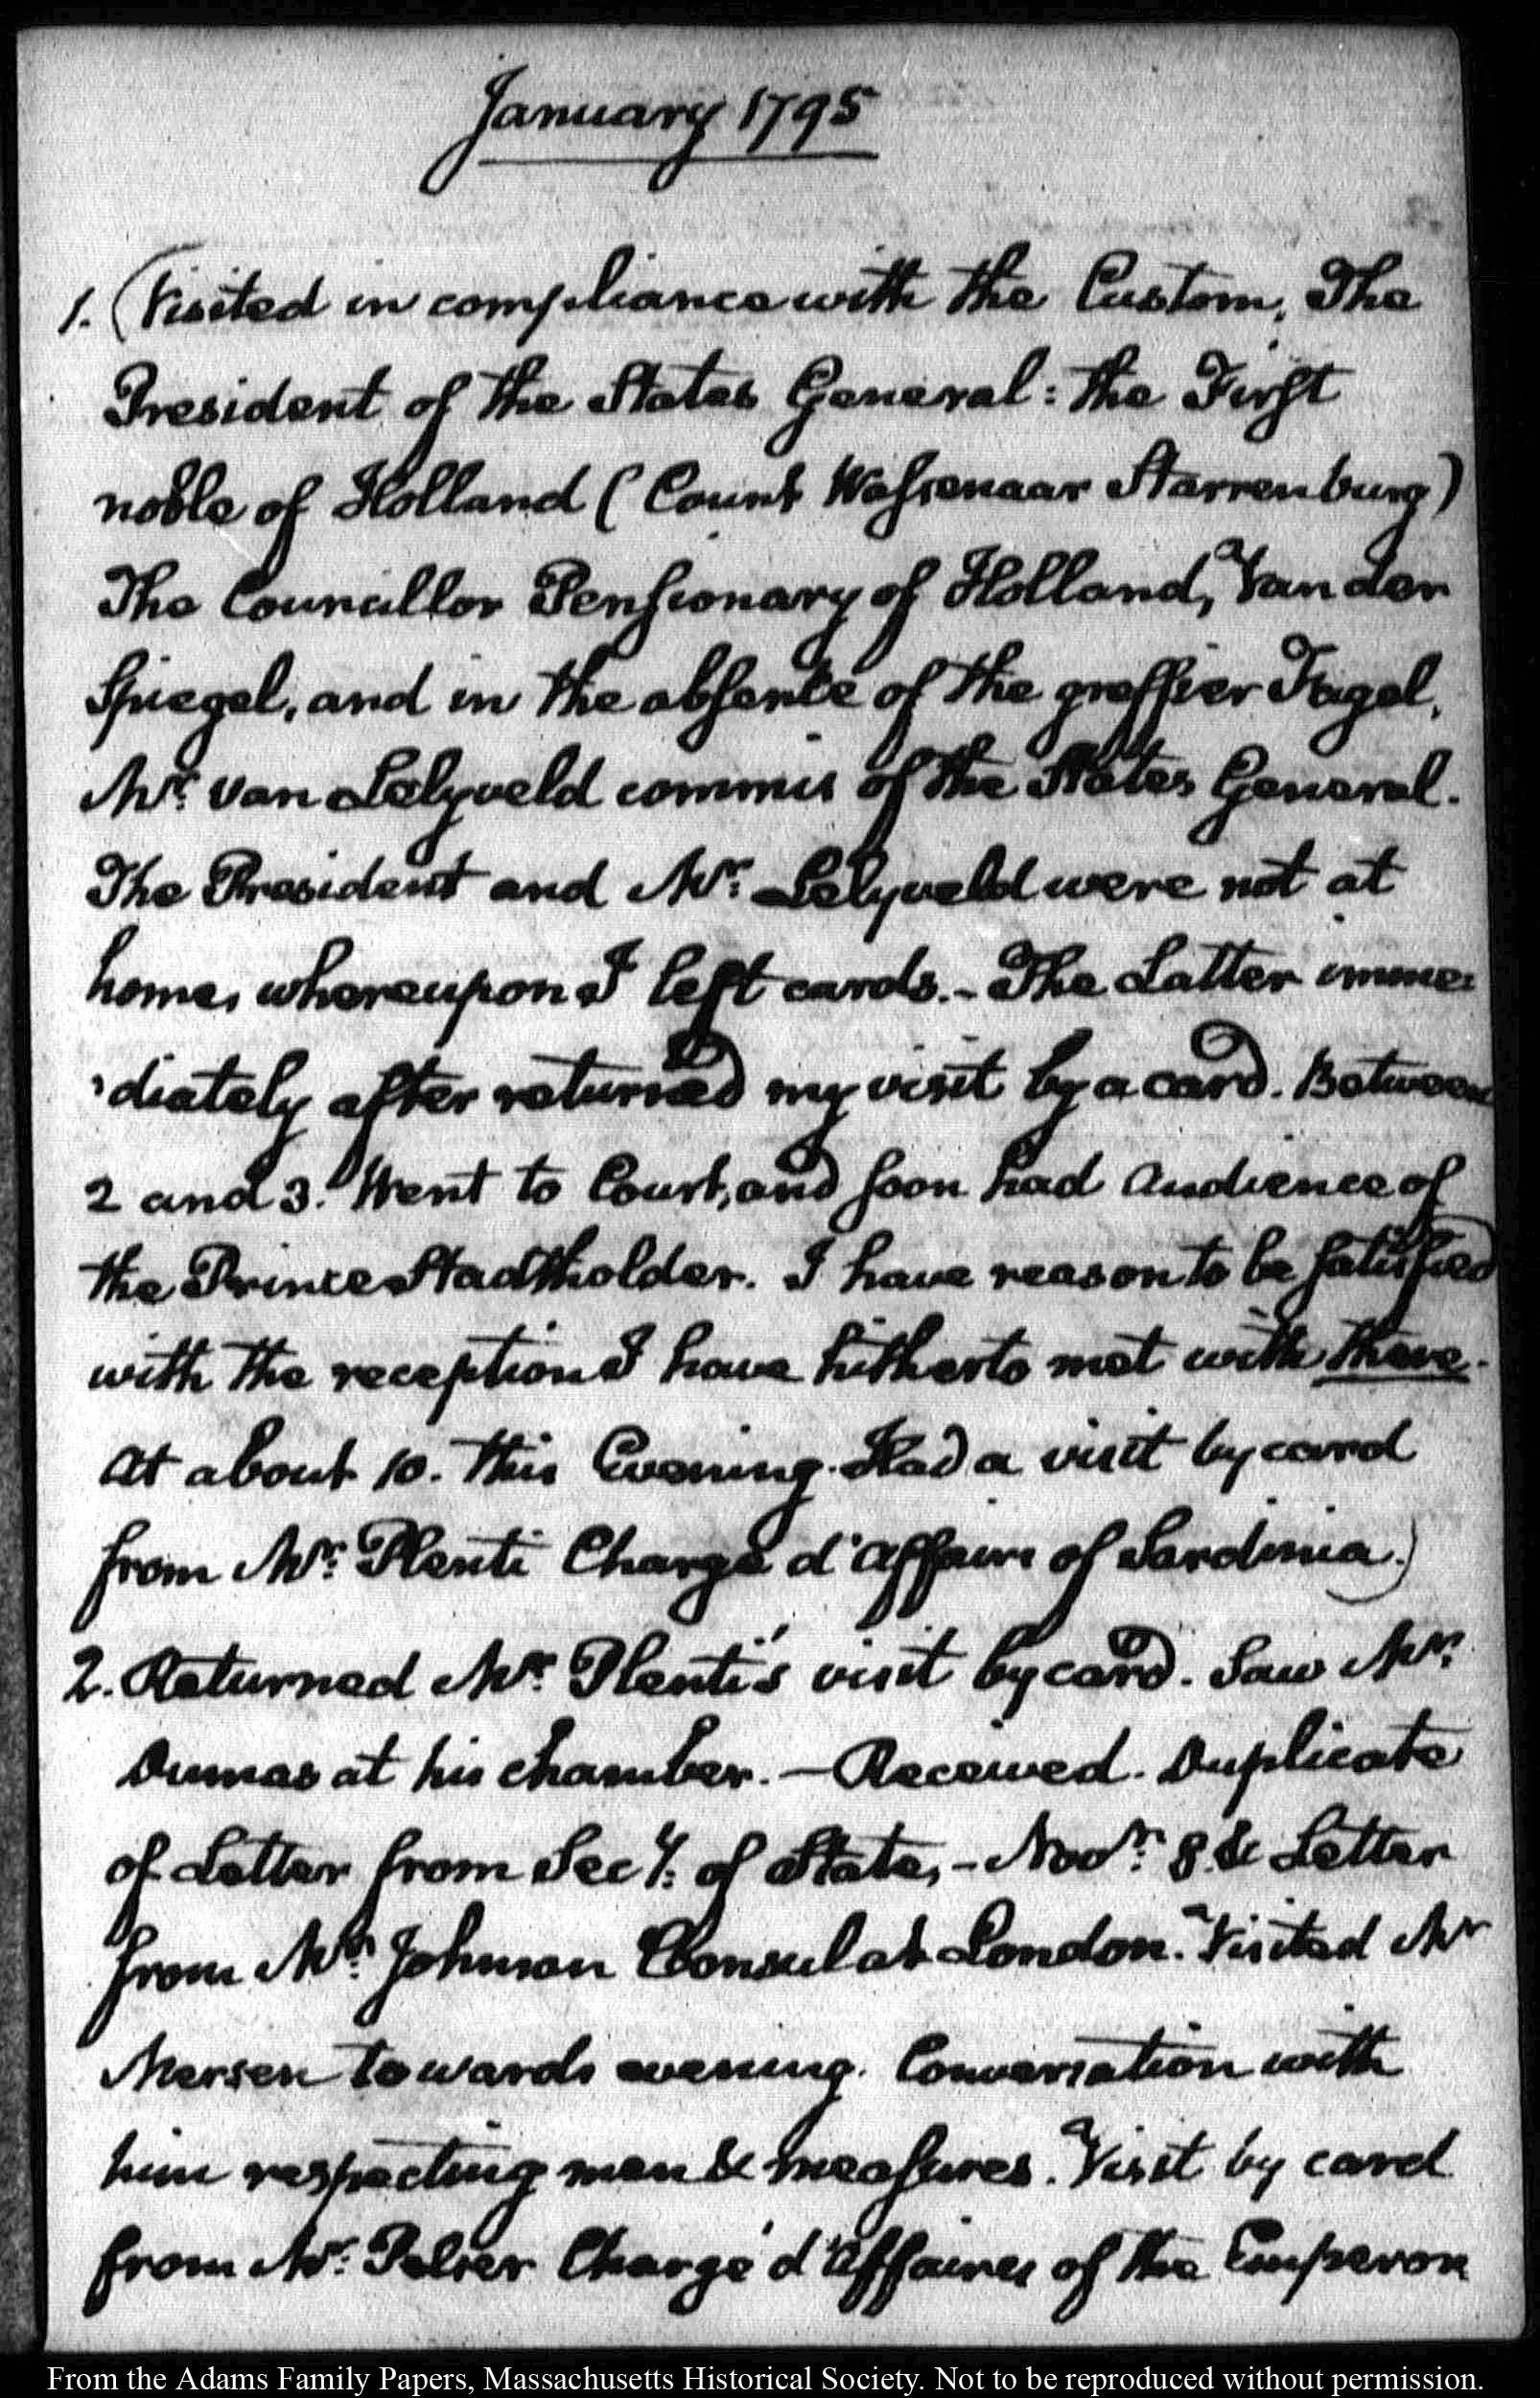 January 1795
1. (Visited in compliance with the Custom, The
President of the States General: the First
noble of Holland (Count Wassenaar Starrenburg)
The Councillor Pensionary of Holland, Van der
Spiegel, and in the absence of the greffier Fagel,
Mr: van Lelyveld commis of the States General.
The President and Mr: Lelyveld were not at
home, whereupon I left cards.- The Latter imme:
:diately after returned my visit by a card. Between
2 and 3. Went to Court, and soon had audience of
the Prince Stadtholder. I have reason to be satisfied
with the reception I have hitherto met with there.
At about 10. this Evening. Had a visit by card
from Mr: Plenti Chargé d'affairs of Sardinia.)
2. Returned Mr: Plenti's visit by card. Saw Mr:
Dumas at his chamber. — Received. Duplicate
of Letter from Secy: of State, - Novr: 8. & Letter
from Mr: Johnson Consul at London. Visited Mr
Mersen towards evening. Conversation with
him respecting men & measures. Visit by card
from Mr: Pelser Chargé d'Affaires of the Emperor
From the Adams Family Papers, Massachusetts Historical Society. Not to be reproduced without permission.